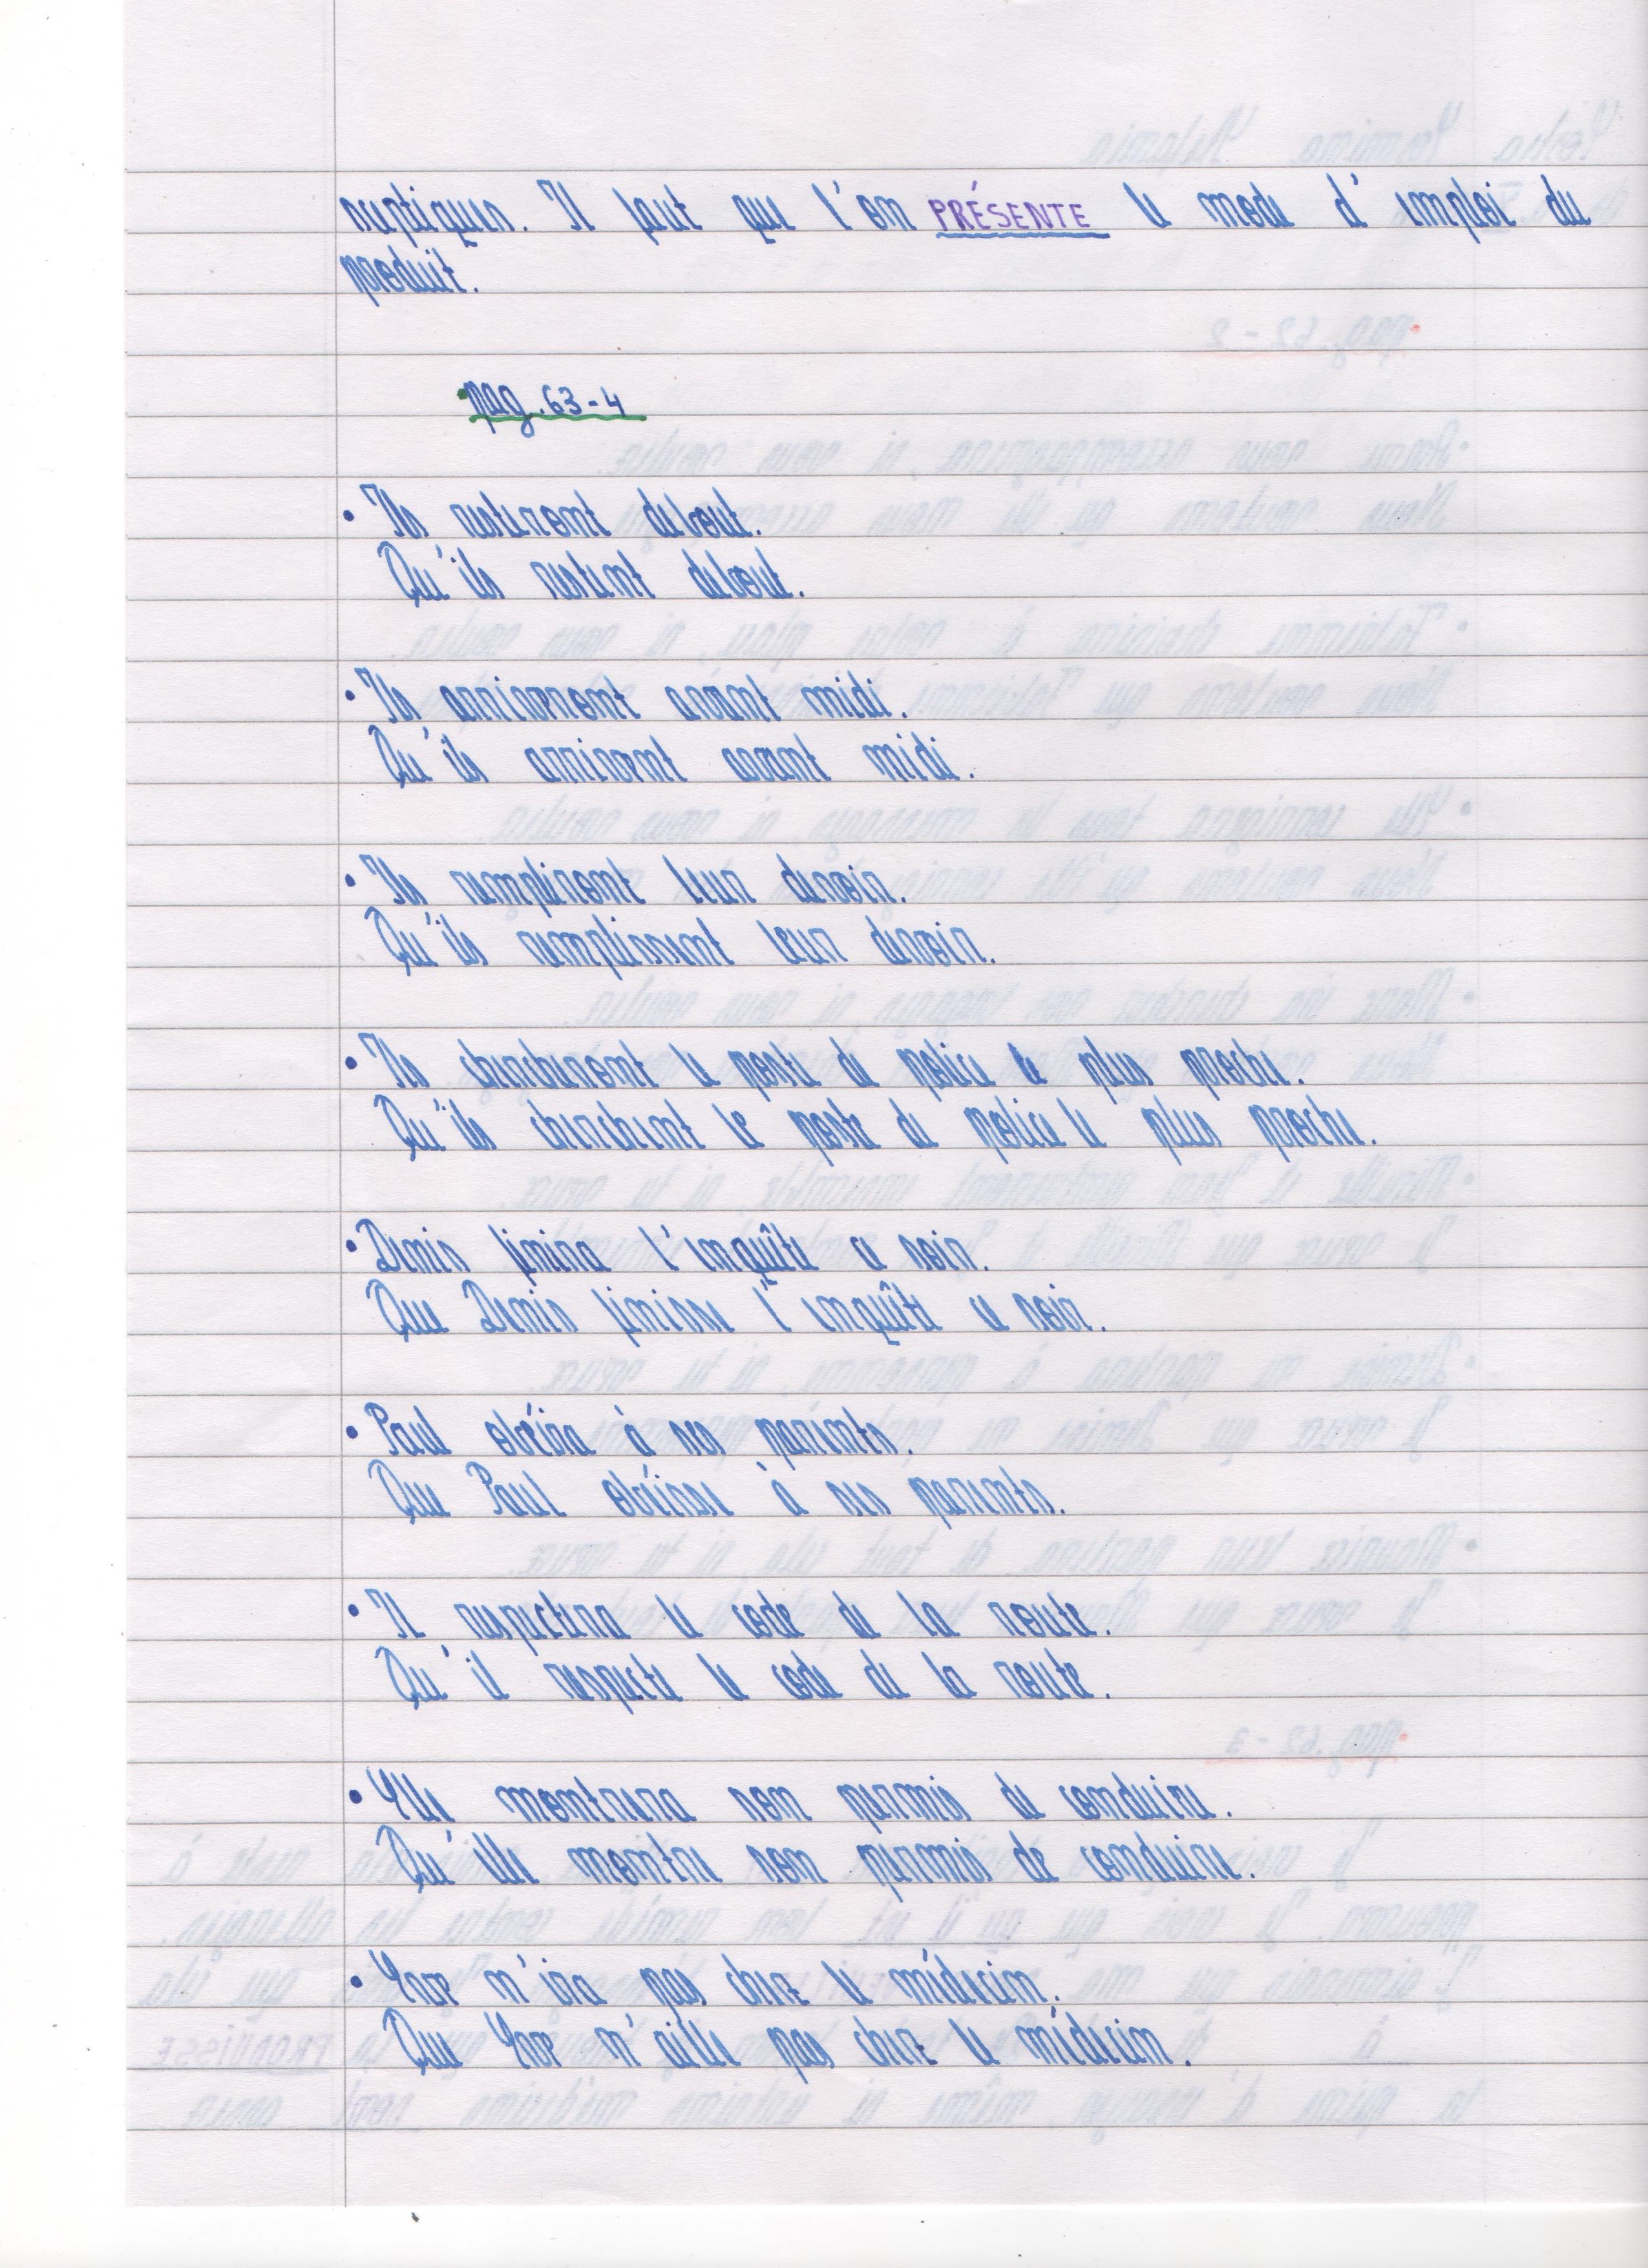 septiques. Il faut que l'on PRÉSENTE le mode d'emploi du
produit.
pag.63-4
• Ils resteront debout.
Qu'ils restent debout.
• Ils arriveront avant midi.
Qu'ils arrivent avant midi.
• Ils rempliront leur devoir.
Qu'ils remplissent leur devoir.
• Ils chercheront le poste de police le plus proche.
Qu'ils cherchent le poste de police le plus proche.
• Denis finira l'enquîte ce soir.
Que Denis finisse l'enquîte ce soir.
• Paul obéira à ses parents.
Que Paul obéisse à ses parents.
• Il respectera le code de la route.
Qu'il respecte le code de la route.
• Elle montrera son permis de conduire.
Qu'elle montre son permis de conduire.
• Eve n'ira pas chez le médecin.
Que Eve n'aille pas chez le médecin.